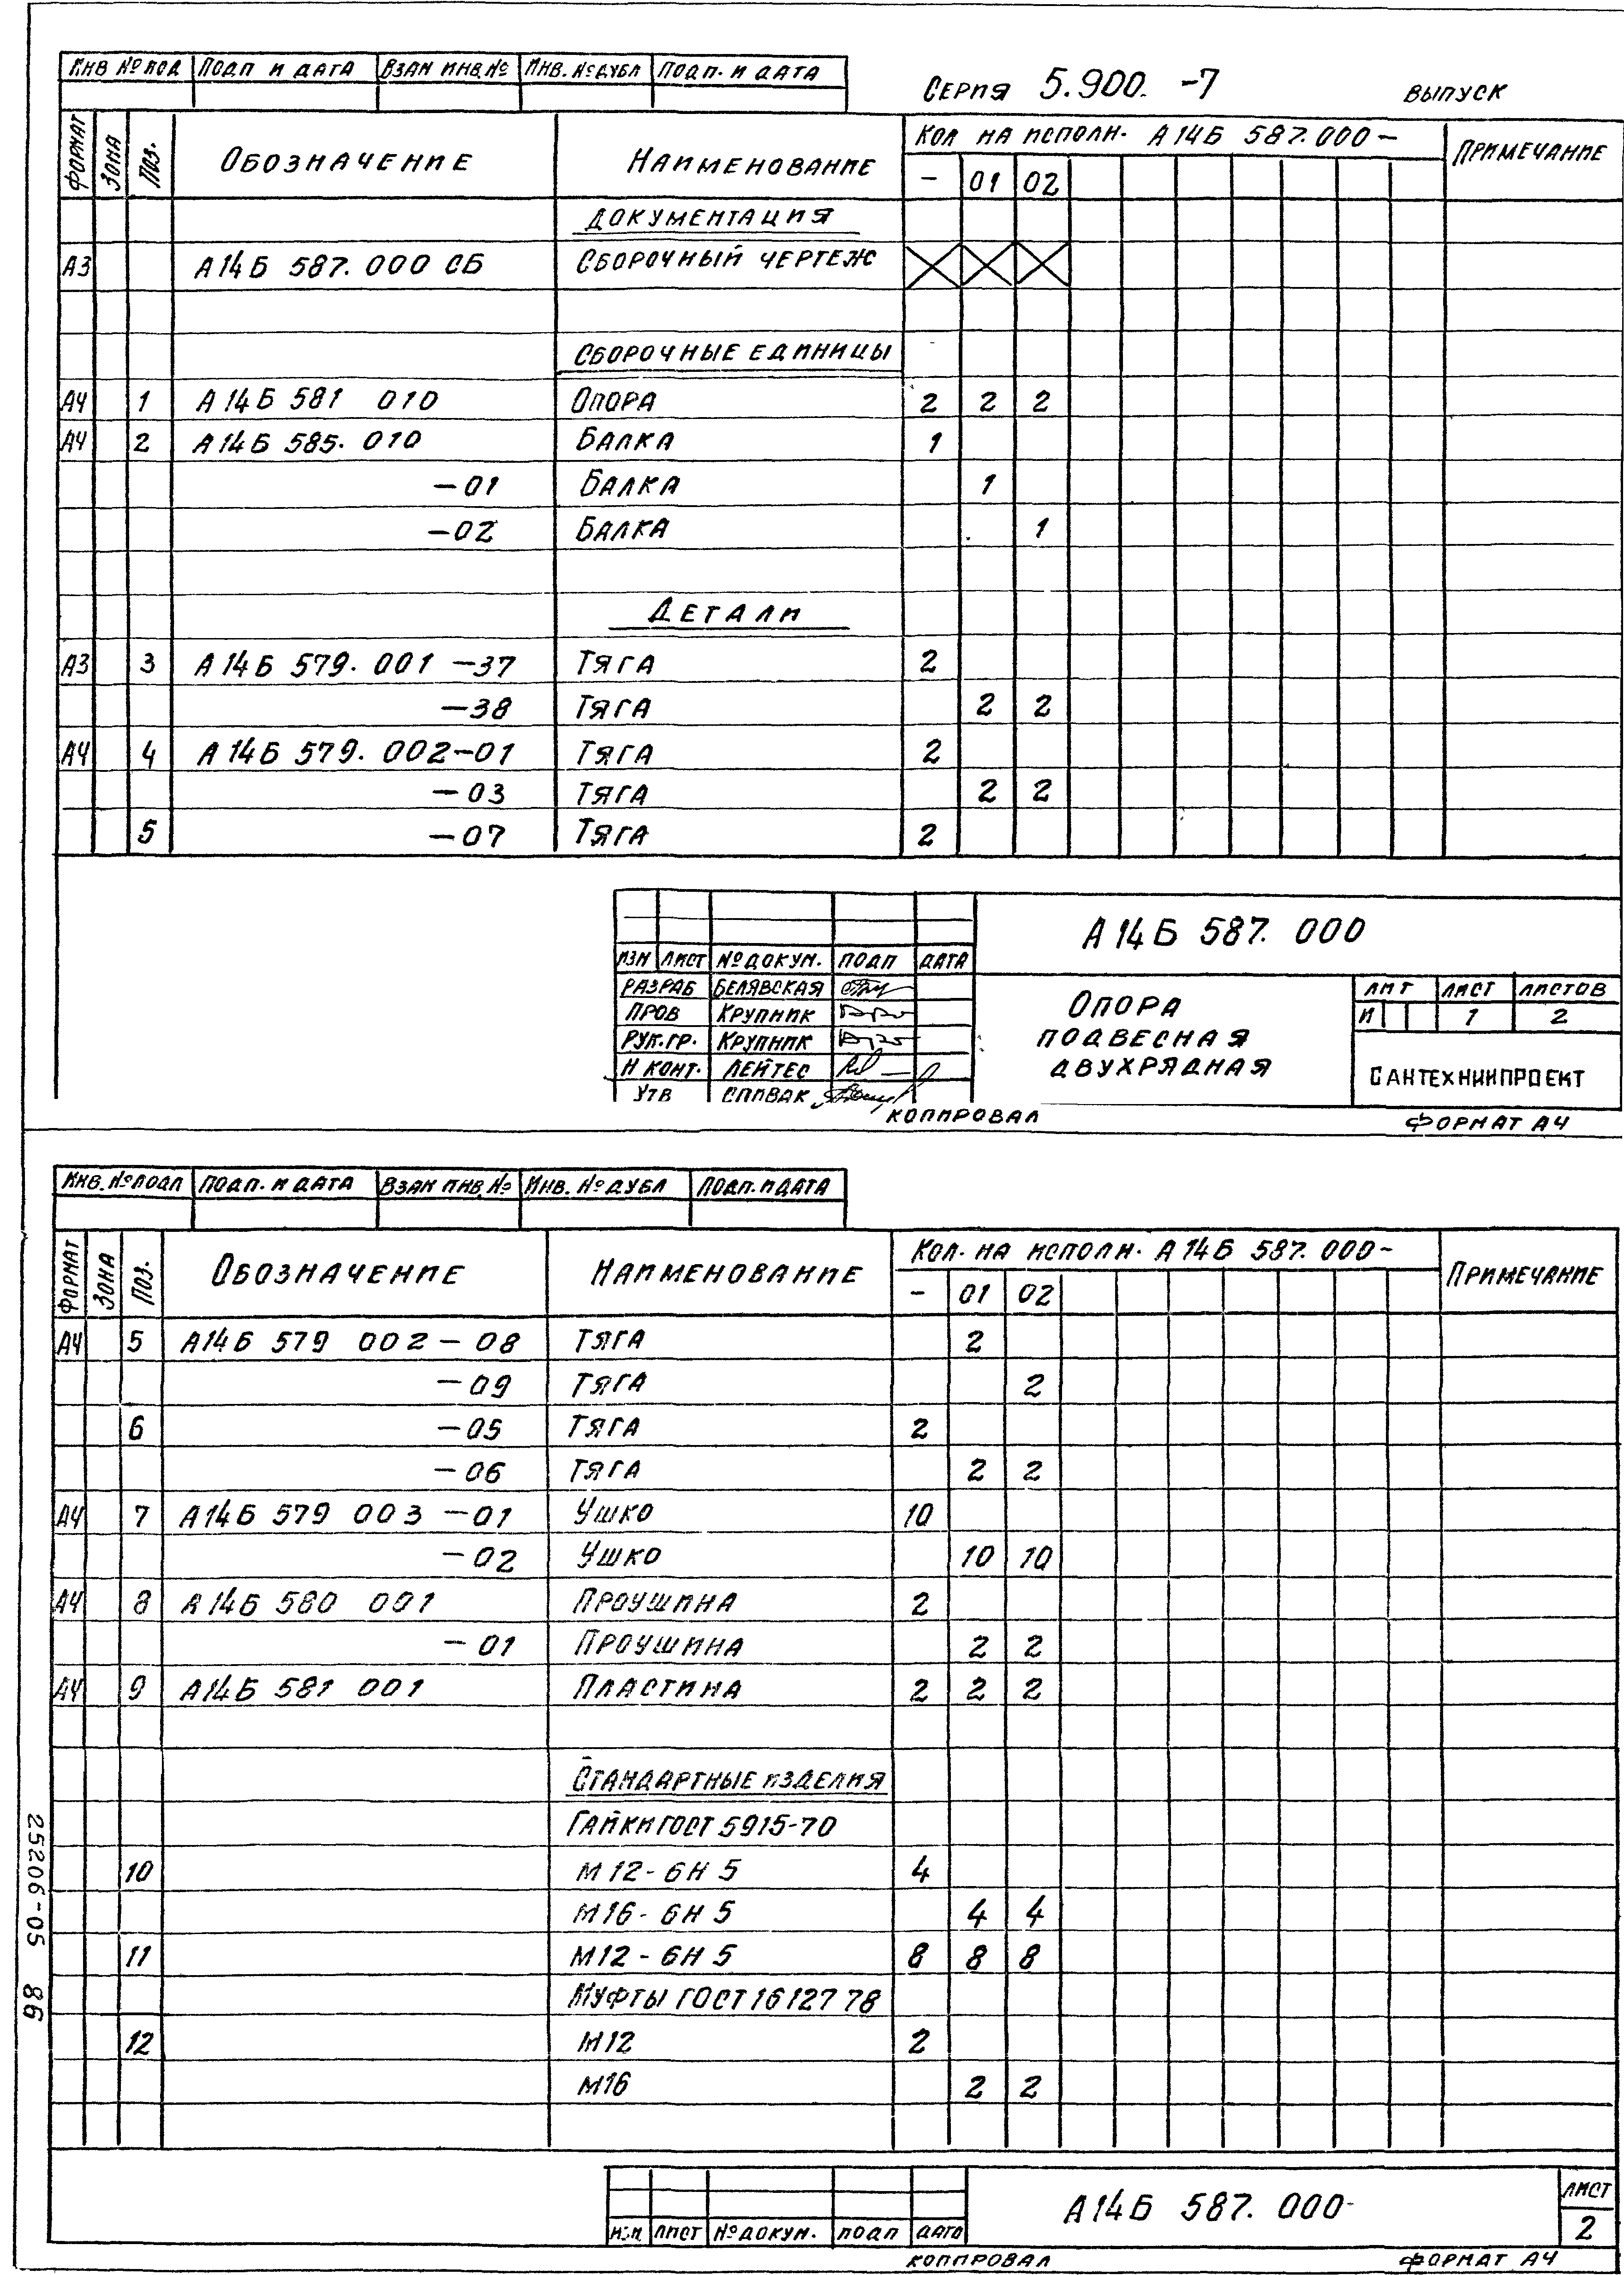 ИНВ № ПОД ПОДП И ДАТА ВЗАМ ИНВ № ИНВ. № ДУБЛ ПОДП. И ДАТА
СЕРИЯ 5.900. -7 ВЫПУСК
ФОРМАТ ЗОНА ПОЗ. ОБОЗНАЧЕНИЕ НАИМЕНОВАНИЕ КОЛ НА ИСПОЛН. А14Б 587.000— ПРИМЕЧАНИЕ
— 01 02
ДОКУМЕНТАЦИЯ
А3 А14Б 587.000 СБ СБОРОЧНЫЙ ЧЕРТЕЖ
СБОРОЧНЫЕ ЕДИНИЦЫ
А4 1 А14Б 581 010 ОПОРА 2 2 2
А4 2 А14Б 585.010 БАЛКА 1
—01 БАЛКА 1
—02 БАЛКА 1
ДЕТАЛИ
А3 3 А14Б 579.001 —37 ТЯГА 2
—38 ТЯГА 2 2
А4 4 А14Б 579.002—01 ТЯГА 2
—03 ТЯГА 2 2
5 —07 ТЯГА 2
А14Б 587.000
ИЗМ ЛИСТ № ДОКУМ. ПОДП ДАТА
РАЗРАБ БЕЛЯВСКАЯ
ПРОВ КРУПНИК
РУК.ГР. КРУПНИК
Н КОНТ. ЛЕЙТЕС
УТВ СПИВАК
ОПОРА
ПОДВЕСНАЯ
ДВУХРЯДНАЯ
ЛИТ ЛИСТ ЛИСТОВ
И 1 2
САНТЕХНИИПРОЕКТ
КОПИРОВАЛ ФОРМАТ А4
ИНВ. № ПОДЛ ПОДП. И ДАТА ВЗАМ ИНВ. № ИНВ. № ДУБЛ ПОДП. И ДАТА
ФОРМАТ ЗОНА ПОЗ. ОБОЗНАЧЕНИЕ НАИМЕНОВАНИЕ КОЛ. НА ИСПОЛН. А14Б 587.000— ПРИМЕЧАНИЕ
— 01 02
А4 5 А14Б 579 002— 08 ТЯГА 2
—09 ТЯГА 2
6 —05 ТЯГА 2
—06 ТЯГА 2 2
А4 7 А14Б 579 003 —01 УШКО 10
—02 УШКО 10 10
А4 8 А14Б 580 001 ПРОУШИНА 2
—01 ПРОУШИНА 2 2
А4 9 А14Б 581 001 ПЛАСТИНА 2 2 2
СТАНДАРТНЫЕ ИЗДЕЛИЯ
ГАЙКИ ГОСТ 5915-70
10 М12-6Н 5 4
М16-6Н 5 4 4
11 М12-6Н 5 8 8 8
МУФТЫ ГОСТ 16127 78
12 М12 2
М16 2 2
25206-05 86
А14Б 587.000-
ЛИСТ
2
ИЗМ ЛИСТ № ДОКУМ. ПОДП ДАТА
КОПИРОВАЛ ФОРМАТ А4